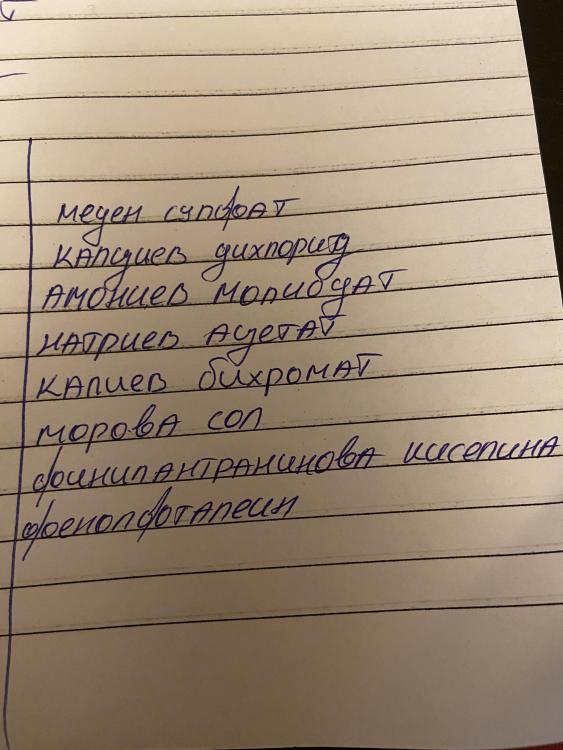 меден сулфат
калциев дихлорид
амониев молибдат
натриев ацетат
калиев бихромат
морова сол
финилантранинова киселина
фенолфоталеин